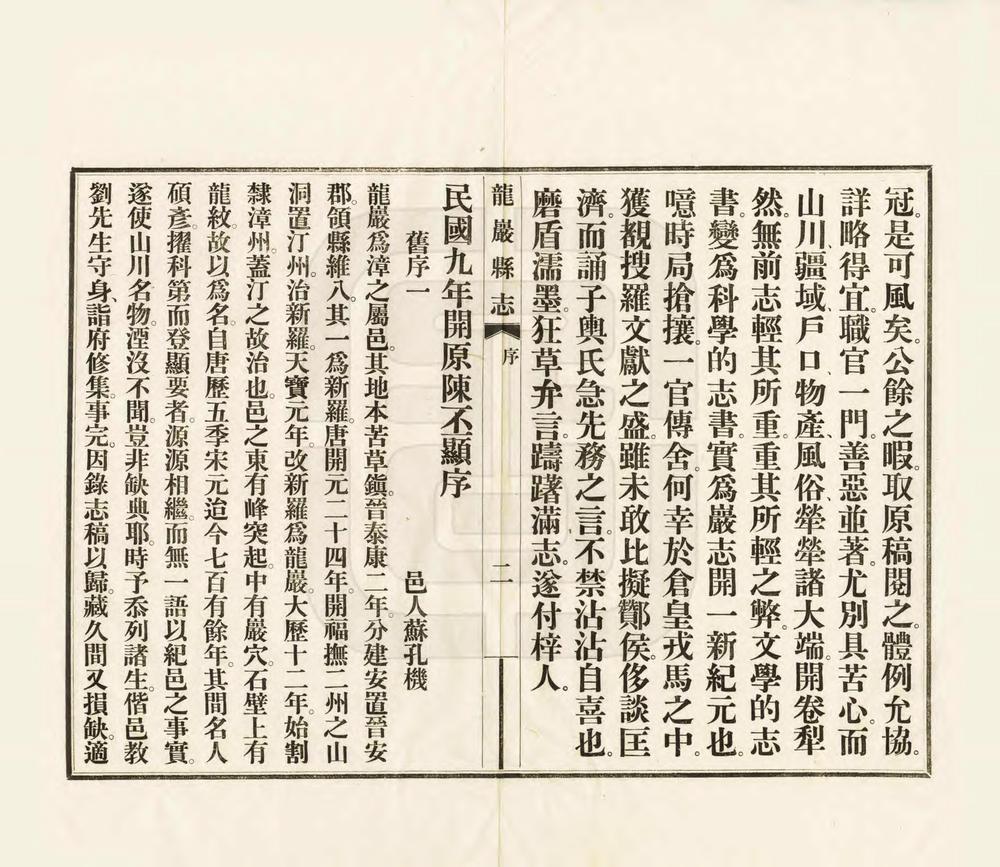 冠。是可風矣。公餘之暇。取原稿閱之。體例允協。
詳略得宜。職官一門。善惡並著。尤別具苦心。而
山川、疆域、戶口、物產、風俗、犖犖諸大端。開卷犁
然。無前志輕其所重。重其所輕之弊。文學的志
書。變爲科學的志書。實爲嚴志開一新紀元也。
噫。時局搶攘。一官傳舍。何幸於倉皇戎馬之中。
獲覩搜羅文獻之盛。雖未敢比擬酇侯。侈談匡
濟。而誦子輿氏急先務之言。不禁沾沾自喜也。
磨盾濡墨。狂草弁言。躊躇滿志。遂付梓人。
民國九年開原陳丕顯序
龍巖縣志 序 二
舊序一 邑人蘇孔機
龍巖爲漳之屬邑。其地本苦草鎭。晉泰康二年。分建安置晉安
郡。領縣維八。其一爲新羅。唐開元二十四年。開福撫二州之山
洞。置汀州。治新羅。天寶元年。改新羅爲龍巖。大歷十二年。始割
隸漳州。蓋汀之故治也。邑之東有峰突起。中有巖穴。石壁上有
龍紋。故以爲名。自唐歷五季宋元迨今七百有餘年。其間名人
碩彥。擢科第而登顯要者。源源相繼。而無一語以紀邑之事實。
遂使山川名物。湮沒不聞。豈非缺典耶。時予忝列諸生。偕邑教
劉先生守身、詣府修集。事完。因錄志稿以歸。藏久間又損缺。適